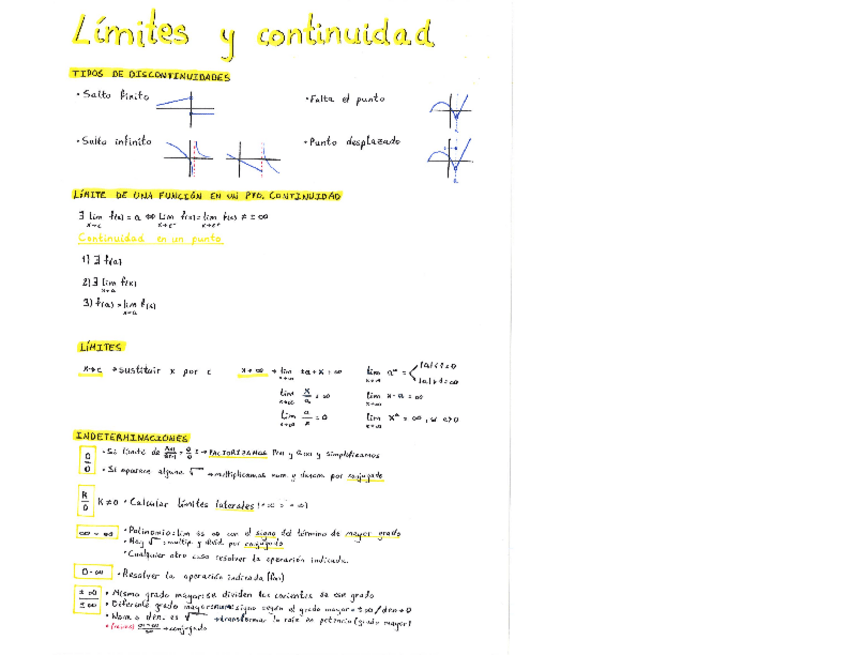 Límites y continuidad
TIPOS DE DISCONTINUIDADES
• Salto finito
• Falta el punto
• Salto infinito
• Punto desplazado
LÍMITE DE UNA FUNCIÓN EN UN PTO. CONTINUIDAD
∃ lim f(x) = a ⇔ lim f(x) = lim f(x) ≠ ± ∞
x→c x→c⁻ x→c⁺
Continuidad en un punto
1) ∃ f(a)
2) ∃ lim f(x)
x→a
3) f(a) = lim f(x)
x→a
LÍMITES
x→c → sustituir x por c
x→∞ → lim ±a+x = ∞
lim x/a = ∞
lim a/x = 0
lim x·a = ∞
INDETERMINACIONES
0/0 • Si límite de FACTORIZAMOS y simplificamos
• Si aparece alguna √ → multiplicamos num y denom por conjugado
K/0 K≠0 • Calcular límites laterales
∞-∞ • Polinomio: lim es ∞ con el signo del término de mayor grado
• Hay √ : multip. y divid. por conjugado
• Cualquier otro caso resolver la operación indicada.
0·∞ • Resolver la operación indicada
±∞/±∞ • Mismo grado mayor: se dividen los de con grado
• Diferente grado mayor: signo según el grado mayor = ±∞ / den → 0
• Num o den. es √ → transformar la raíz en potencia (grado mayor)
→ conjugado